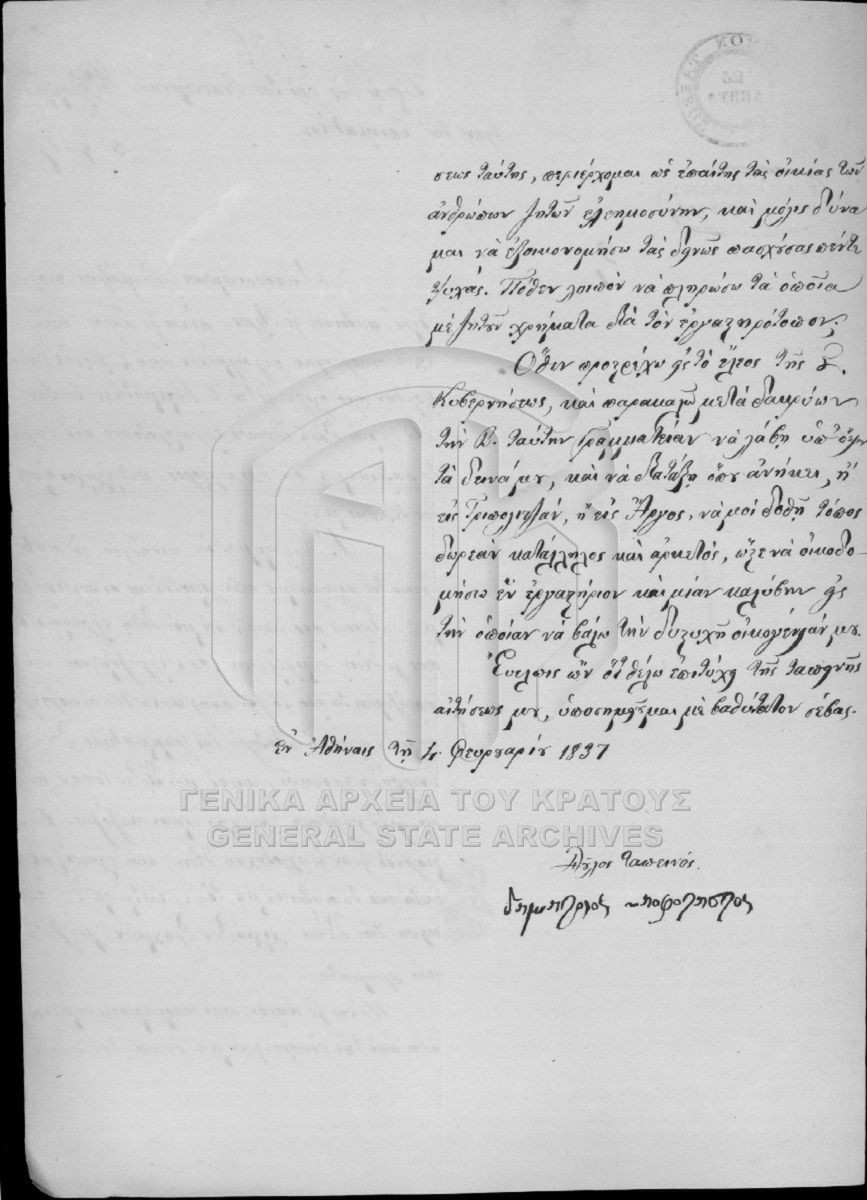 σεως ταύτης, περιέρχομαι ὡς ἐπαίτης τὰς οἰκίας τῶν
ἀνθρώπων ζητῶν ἐλεημοσύνην, καὶ μόλις δύνα
μαι νὰ ἐξοικονομήσω τὰς δεινῶς πασχούσας πέντε
ψυχάς. Πόθεν λοιπὸν νὰ πληρώσω τὰ ὁποῖα
μὲ ζητοῦν χρήματα διὰ τὸν ἐργαστηρότοπον;
Ὅθεν προστρέχω εἰς τὸ ἔλεος τῆς Σ.
Κυβερνήσεως, καὶ παρακαλῶ μετὰ δακρύων
τὴν Β. ταύτην Γραμματείαν νὰ λάβῃ ὑπ' ὄψιν
τὰ δεινά μου, καὶ νὰ διατάξῃ ὅπου ἀνήκει, ἢ
εἰς Τριπολιτζάν, ἢ εἰς Ἄργος, νὰ μοὶ δοθῇ τόπος
δωρεὰν κατάλληλος καὶ ἀρκετός, ὥστε νὰ οἰκοδο-
μήσω ἓν ἐργαστήριον καὶ μίαν καλύβην εἰς
τὴν ὁποίαν νὰ βάλω τὴν δυστυχῆ οἰκογένειάν μου.
Εὔελπις ὢν ὅτι θέλω ἐπιτύχῃ τῆς ταπεινῆς
αἰτήσεώς μου, ὑποσημειοῦμαι μὲ βαθύτατον σέβας.
ἐν Ἀθήναις τῇ 4 Φευρουαρίου 1837
Δοῦλος ταπεινός.
δημητριος
ΓΕΝΙΚΑ ΑΡΧΕΙΑ ΤΟΥ ΚΡΑΤΟΥΣ
GENERAL STATE ARCHIVES